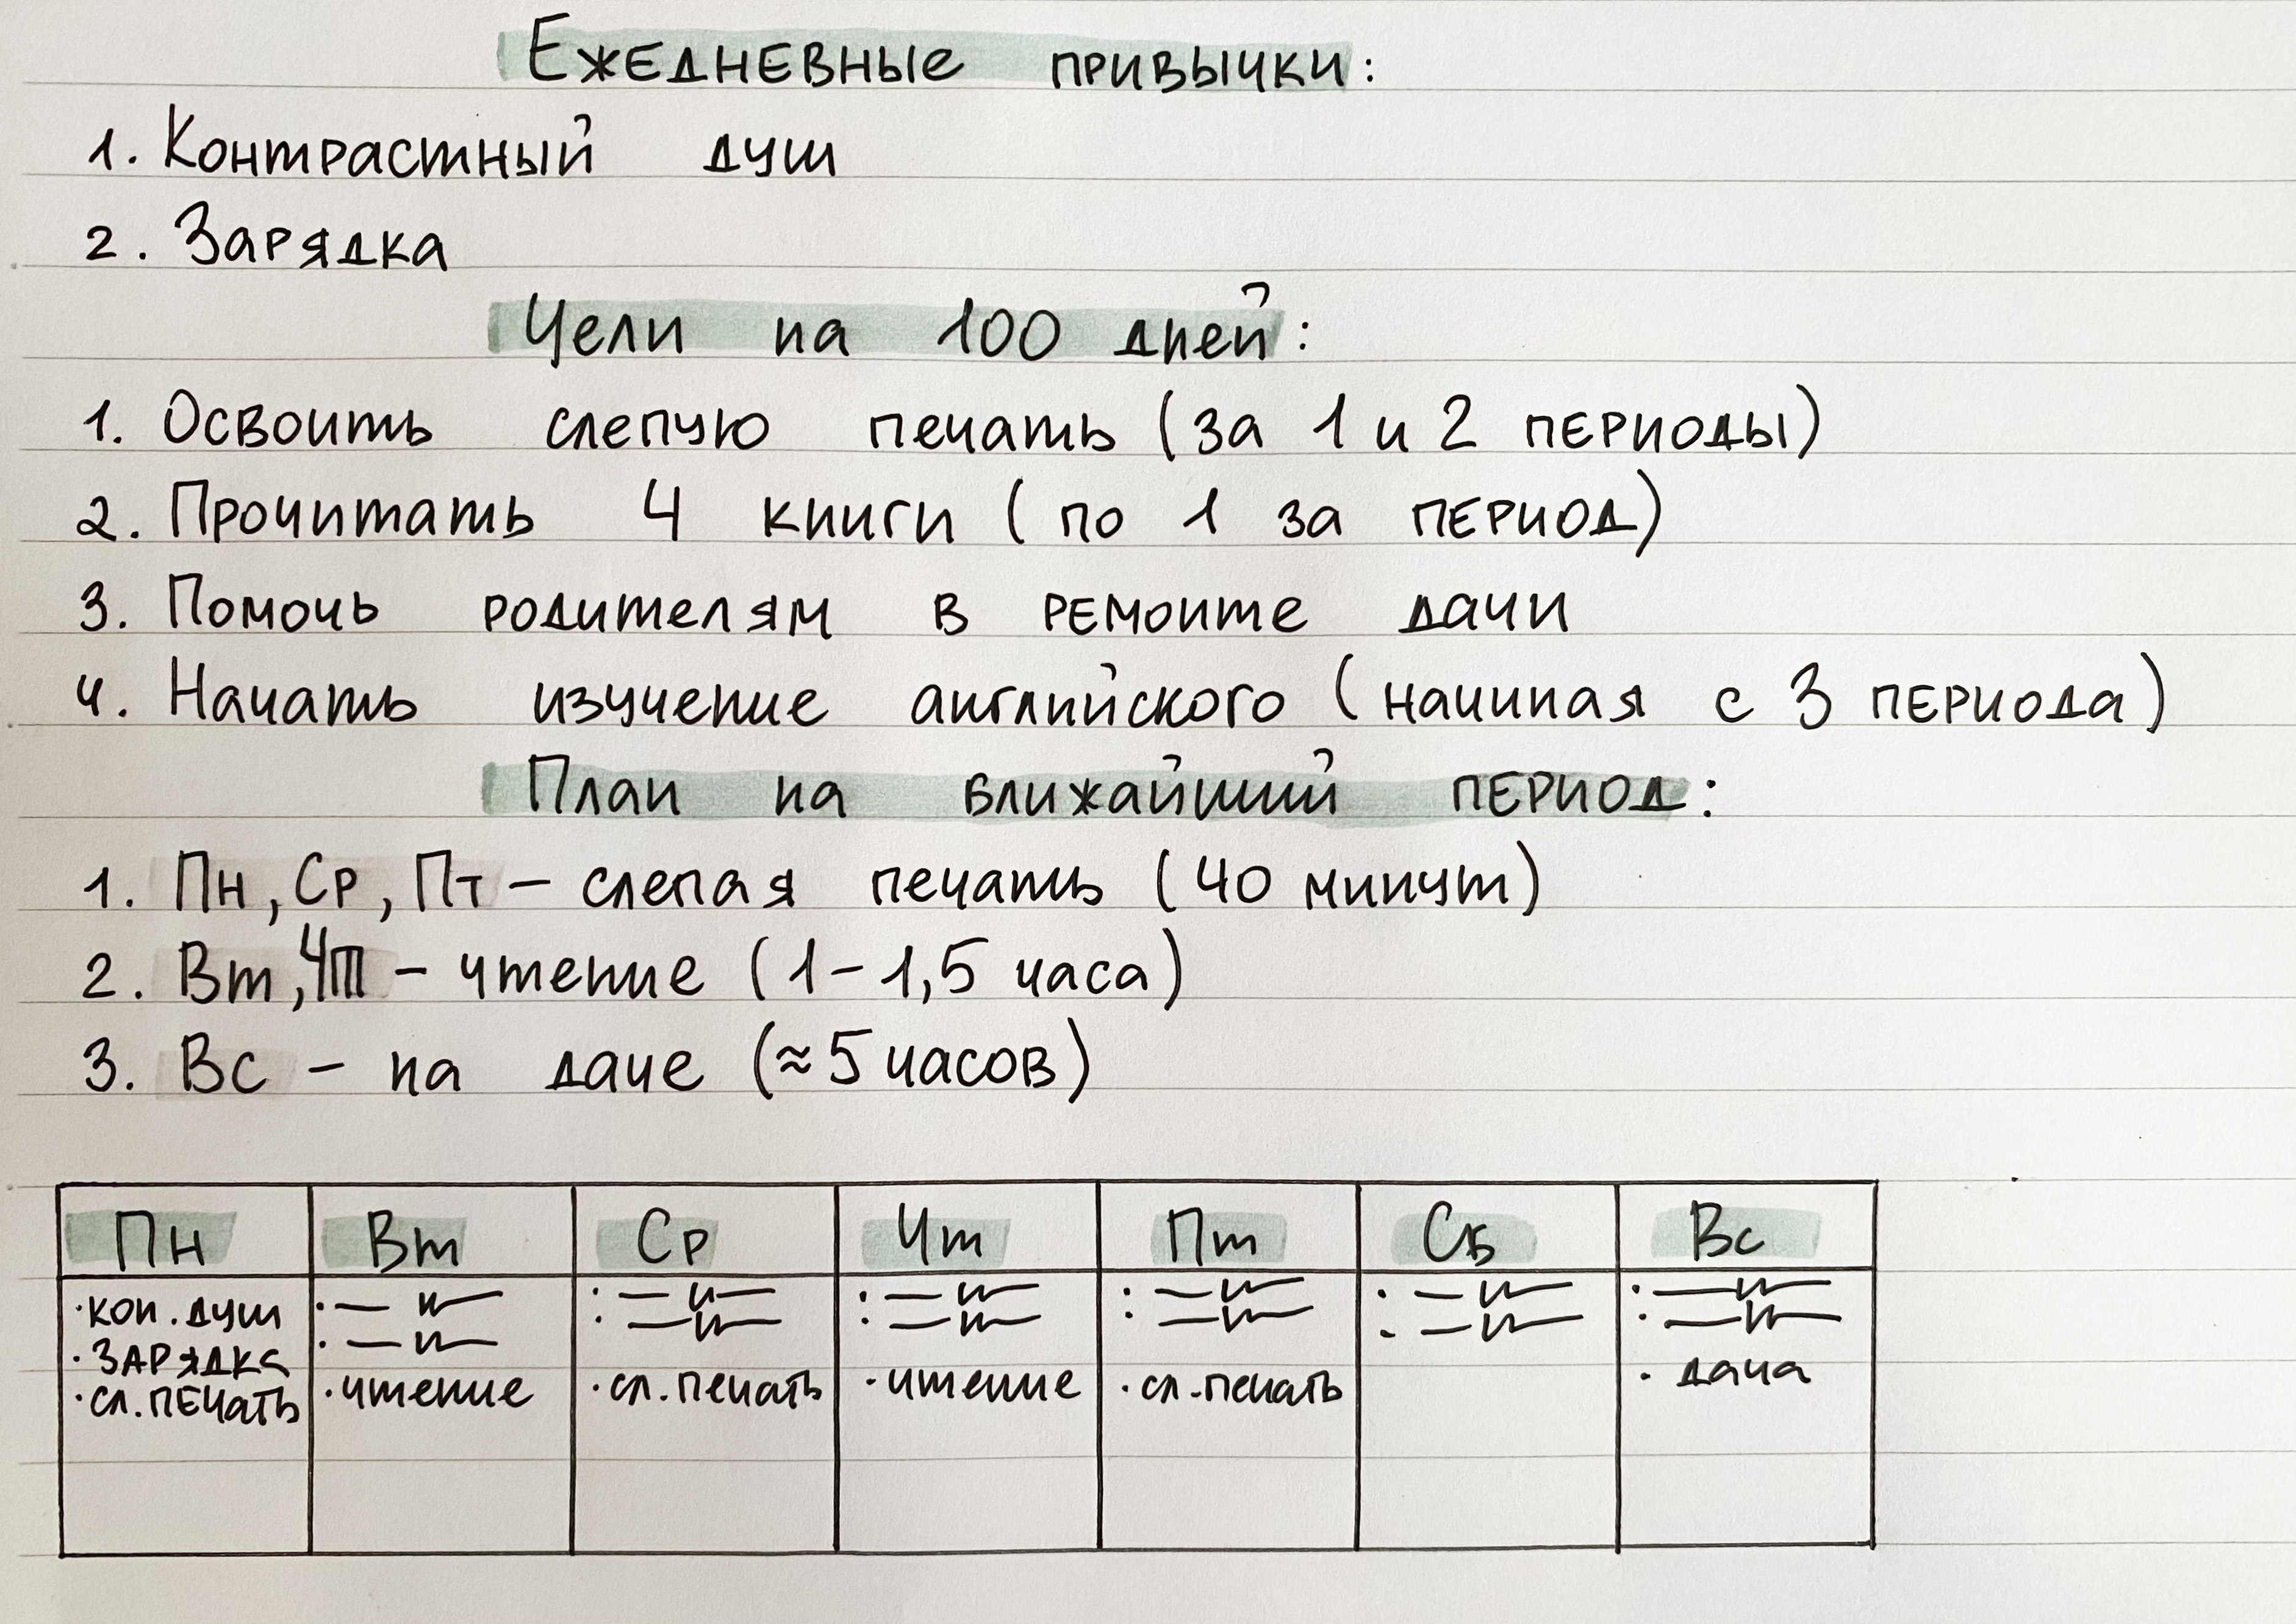 Ежедневные привычки:
1. Контрастный душ
2. Зарядка
Цели на 100 дней:
1. Освоить слепую печать (за 1 и 2 периоды)
2. Прочитать 4 книги (по 1 за период)
3. Помочь родителям в ремонте дачи
4. Начать изучение английского (начиная с 3 периода)
План на ближайший период:
1. Пн, Ср, Пт – слепая печать (40 минут)
2. Вт, Чт – чтение (1-1,5 часа)
3. Вс – на даче (≈5 часов)
Пн Вт Ср Чт Пт Сб Вс
· кон. душ · — и — · — и — · — и — · — и — · — и — · — и —
· зарядка · — и — · — и — · — и — · — и — · — и — · — и —
· сл. печать · чтение · сл. печать · чтение · сл. печать · дача